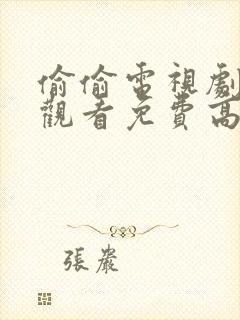 偷偷電視劇
觀看免費高
張嚴